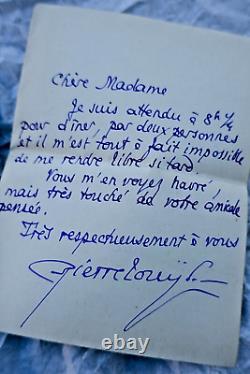 Chère Madame
Je suis attendu à 8h 1/4
pour dîner, par deux personnes
et il m'est tout à fait impossible
de me rendre libre si tard.
Vous m'en voyez navré,
mais très touché de votre amicale
pensée.
Très respectueusement à vous
Pierre Louÿs
© ebay.fr